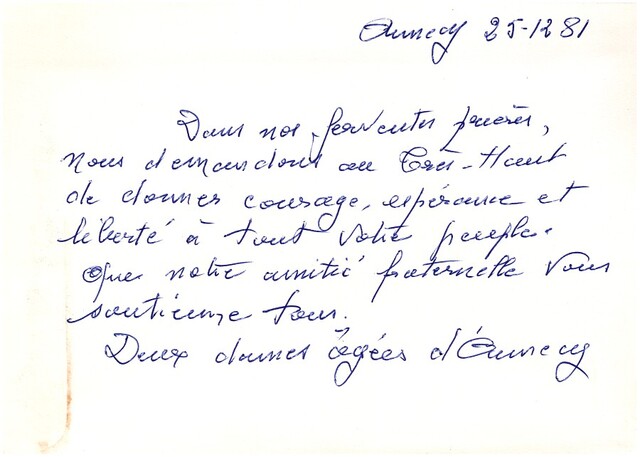 Annecy 25-12 81
Dans nos ferventes prières,
nous demandons au Très-Haut
de donner courage, espérance et
liberté à tout votre peuple.
Que notre amitié fraternelle vous
soutienne tous.
Deux dames âgées d'Annecy